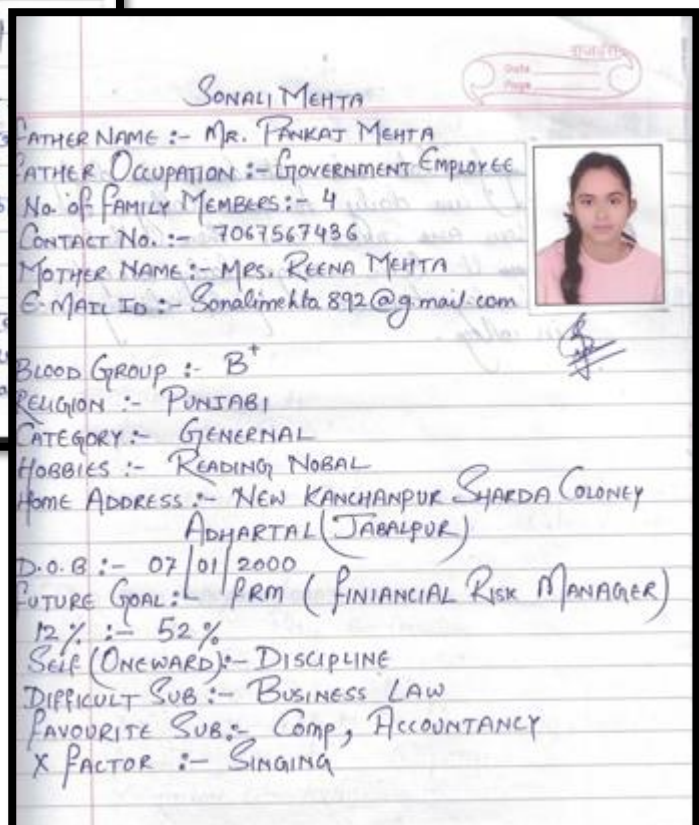 राजदीप
Date
Page
SONALI MEHTA
FATHER NAME :- MR. PANKAJ MEHTA
FATHER OCCUPATION :- GOVERNMENT EMPLOYEE
No. of FAMILY MEMBERS :- 4
CONTACT No. :- 7067567436
MOTHER NAME :- MRS. REENA MEHTA
E-MAIL ID :- Sonalimehta892@gmail.com
BLOOD GROUP :- B+
RELIGION :- PUNJABI
CATEGORY :- GENERNAL
HOBBIES :- READING NOBAL
HOME ADDRESS :- NEW KANCHANPUR SHARDA COLONEY
ADHARTAL (JABALPUR)
D.O.B :- 07/01/2000
FUTURE GOAL :- FRM (FINIANCIAL RISK MANAGER)
12% :- 52%
SELF (ONEWARD) :- DISCIPLINE
DIFFICULT SUB :- BUSINESS LAW
FAVOURITE SUB :- COMP, ACCOUNTANCY
X FACTOR :- SINGING